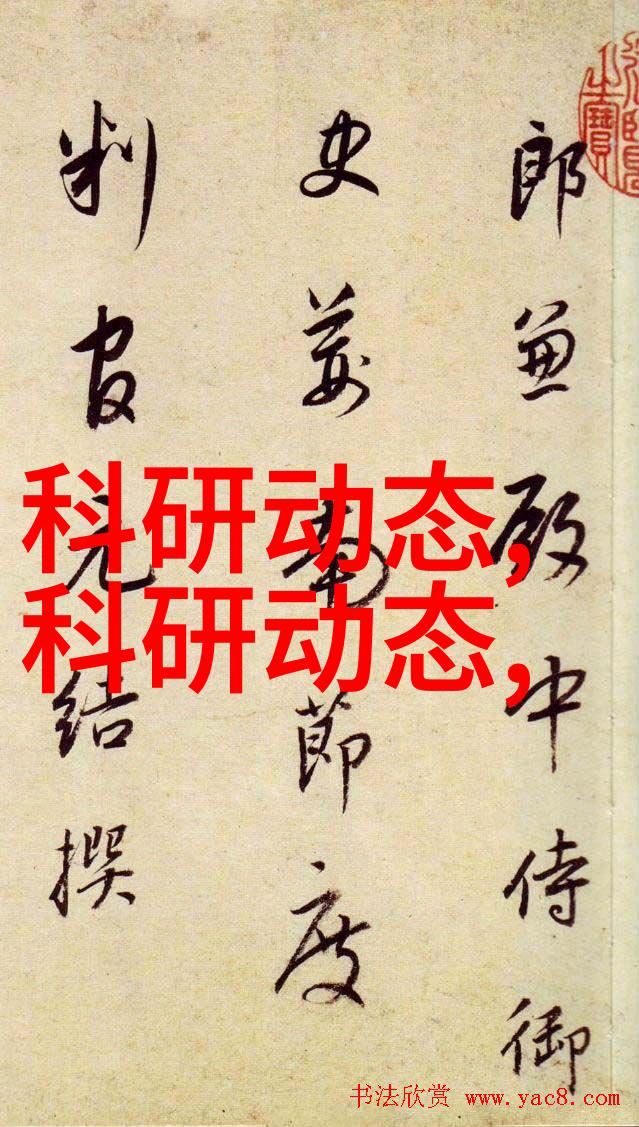 郎兼殿中侍御
史荊南節度
判官元結撰
科研动态,
科研动态,
书法欣赏 www.yac8.com